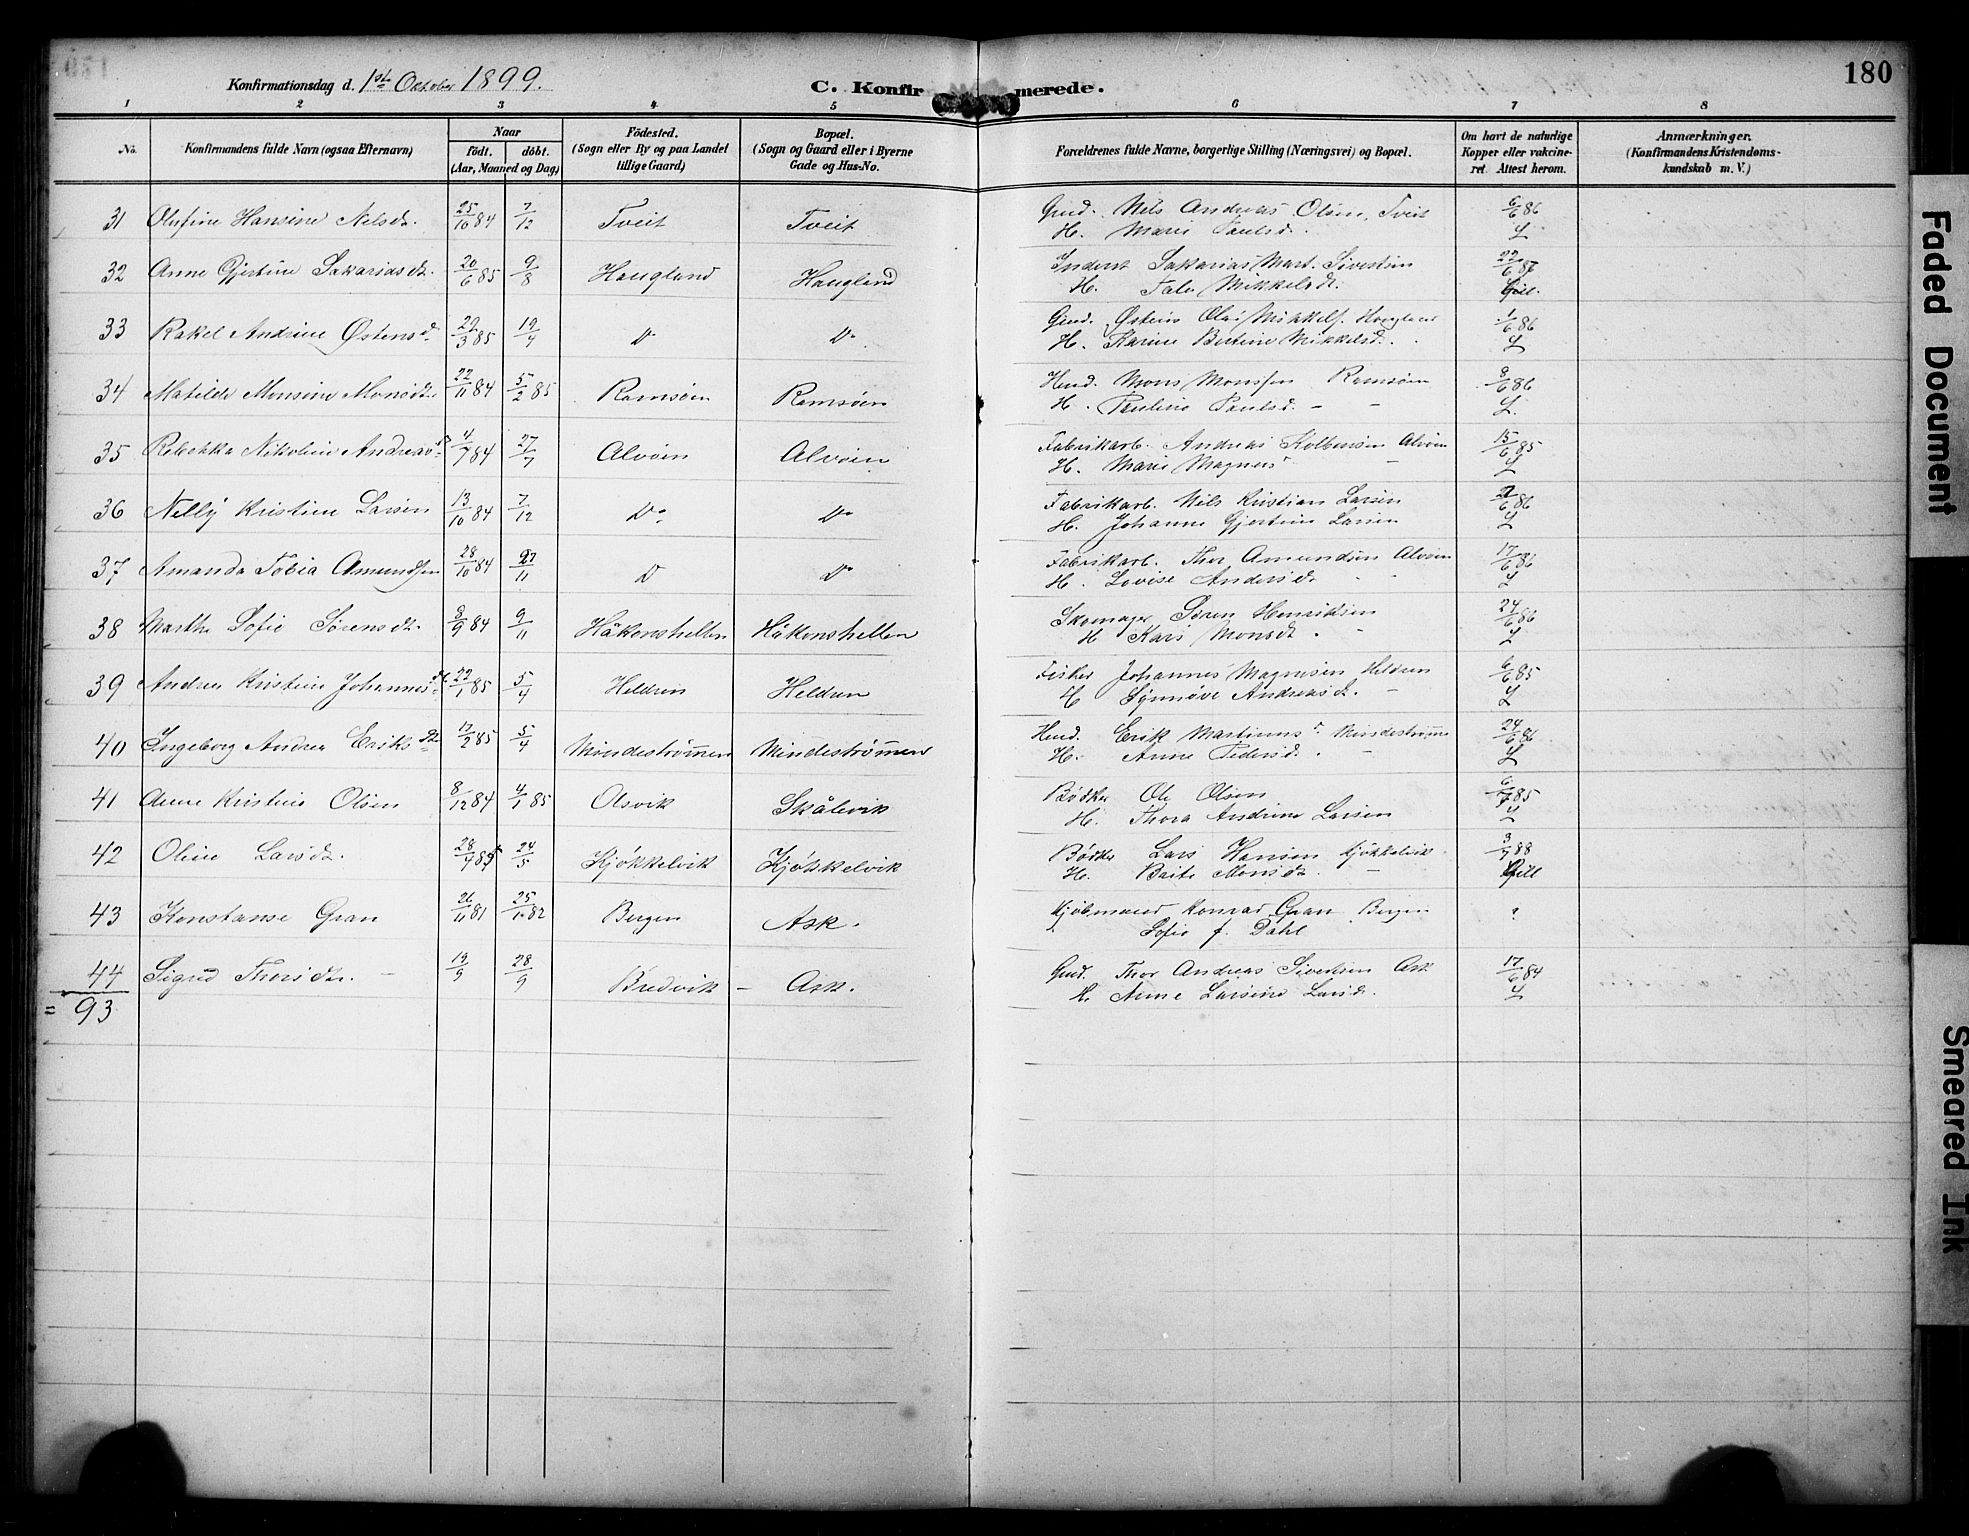 180
Konfirmationsdag d. 1ste Oktober 1899.
C. Konfirmerede.
1 2 3 4 5 6 7 8
No.
Konfirmandens fulde Navn (ogsaa Efternavn)
Naar
födt. döbt.
(Aar, Maaned og Dag)
Födested.
(Sogn eller By og paa Landet
tillige Gaard)
Bopæl.
(Sogn og Gaard eller i Byerne
Gade og Hus-No.
Forældrenes fulde Navne, borgerlige Stilling (Næringsvei) og Bopæl.
Om havt de naturlige
Kopper eller vakcine-
ret Attest herom.
Anmærkninger.
(Konfirmandens Kristendoms-
kundskab m. V.)
31 Olufine Hansine Nelsdt. 25/10 84 7/12 Tveit Tveit Gmd. Nils Andreas Olsen, Tveit 6/6 86
H. Marie Paulsd.
32 Anne Gjertine Sakariasdt. 20/6 85 9/8 Haugland Haugland Inderst Sakarias Mart. Sivertsen 22/6 87
H. Mikkelsdt.
33 Rakel Andrine Østensd. 29/3 85 19/4 Do Do Gmd. Østein Olai Mikkels. 1/6 86
H. Karine Bertine Mikkelsd.
34 Matilde Monsine Monsdt. 22/11 84 5/2 85 Ramsøen Ramsøen Husd. Mons Monssen Ramsøen 8/6 86
H. Pauline Paulsd. - -
35 Rebekka Nikoline Andreasdt 4/7 84 27/7 Alvøen Alvøen Fabrikarb. Andreas Kolbensen Alvøen 15/6 85
H. Marie Magnus -
36 Nelly Kristine Larsen 13/10 84 7/12 Do. Do Fabrikarb. Nils Kristian Larsen 2/6 86
H. Johanne Gjertine Larsen
37 Amanda Tobia Amundsen 28/10 84 27/11 D Do Fabrikarb. Thor Amundsen Alvøen 17/6 86
H. Lovise Andersdt.
38 Marthe Sofie Sørensdt. 8/9 84 9/11 Håkonshellen Håkonshellen Skomager Søren Henriksen 24/6 86
H Kari Monsdt.
39 Andrea Kristine Johannesdt. 22/1 85 5/4 Heldren Heldren Fisker Johannes Magnusen Heldren 6/6 85
H Synnøve Andreasdt. -
40 Ingeborg Andrea Eriksdt 17/2 85 5/4 Mindestrømmen Mindestrømmen Husd. Erik Martinus Mindestrømm 24/6 86
H. Anne Pedersd. -
41 Anne Kristine Olsen 8/12 84 4/1 85 Olsvik Skålevik Bødker Ole Olsen 85
H. Thora Andrine Larsen
42 Oline Larsdt. 28/4 85 24/5 Kjøkkelvik Kjøkkelvik Bødker Lars Hansen Kjøkkelvik 3/7 88
H. Brite Monsdt. -
43 Konstanse Gran 26/11 81 25/1 82 Bergen Ask. Kjøbmand Konrad Gran Bergen ?
Sofie f. Dahl
44 Sigrid Thorsdt. - 13/9 28/9 Bredvik - Ask. Gmd. Thor Andreas Sivertsen Ask 17/6 84
H. Anne Larsine Larsd.
= 93
Faded Document
Smeared Ink